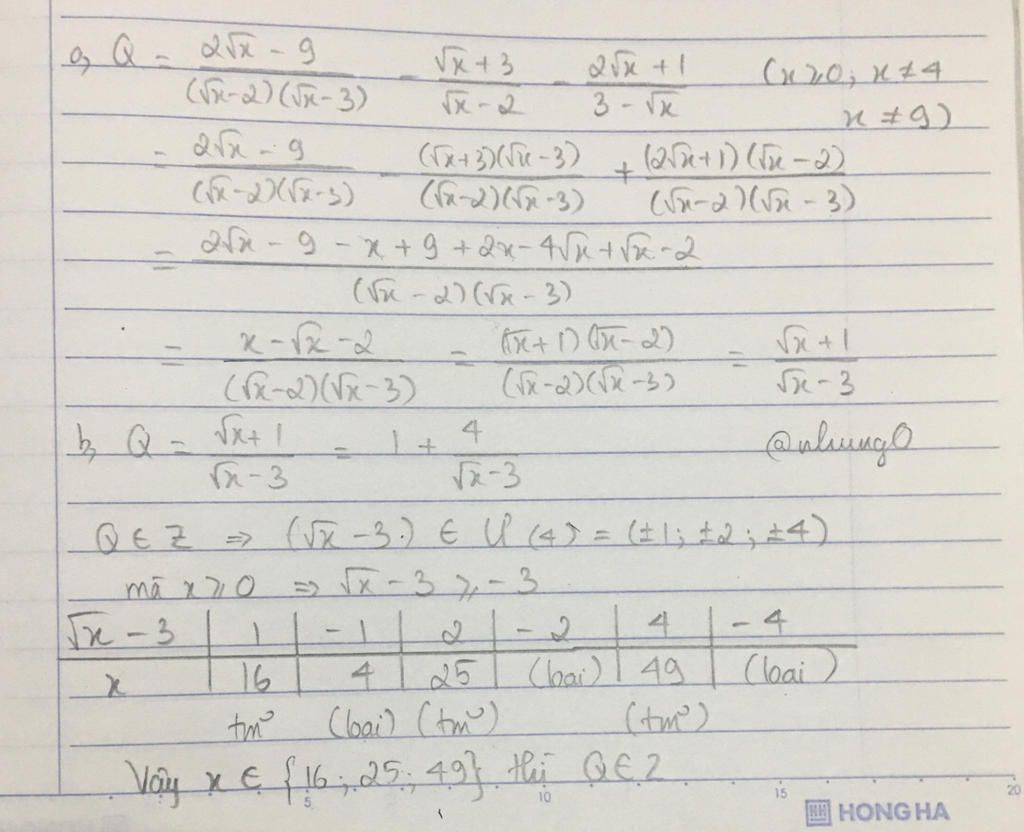 a, Q = (2√x - 9)/((√x-2)(√x-3)) - (√x+3)/(√x-2) - (2√x+1)/(3-√x) (x⩾0; x≠4
x≠9)
= (2√x - 9)/((√x-2)(√x-3)) - ((√x+3)(√x-3))/((√x-2)(√x-3)) + ((2√x+1)(√x-2))/((√x-2)(√x-3))
= (2√x - 9 - x + 9 + 2x - 4√x + √x - 2)/((√x-2)(√x-3))
= (x - √x - 2)/((√x-2)(√x-3)) = ((√x+1)(√x-2))/((√x-2)(√x-3)) = (√x+1)/(√x-3)
b, Q = (√x+1)/(√x-3) = 1 + 4/(√x-3) @nhung0
Q ∈ Z ⇒ (√x-3) ∈ Ư(4) = (±1; ±2; ±4)
mà x⩾0 ⇒ √x-3 ⩾ -3
√x-3 | 1 | -1 | 2 | -2 | 4 | -4
x | 16 | 4 | 25 | (loại) | 49 | (loại)
tm² (loại) (tm²) (tm²)
Vậy x ∈ {16; 25; 49} thì Q∈Z
5 10 15 20
HH HONG HA